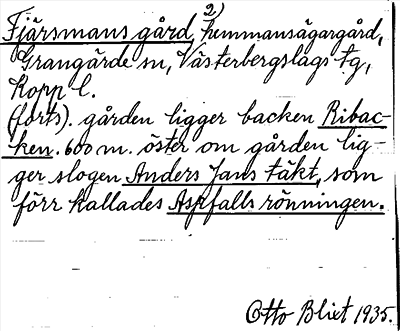 Fjärsmans gård, 2) hemmansägargård,
Grangärde sn, Västerbergslags tg,
Kopp l.
(forts). gården ligger backen Ribac-
ken. 600 m. öster om gården lig-
ger slogen Anders Jans täkt, som
förr kallades Aspfallsrönningen.
Otto Blixt 1935.